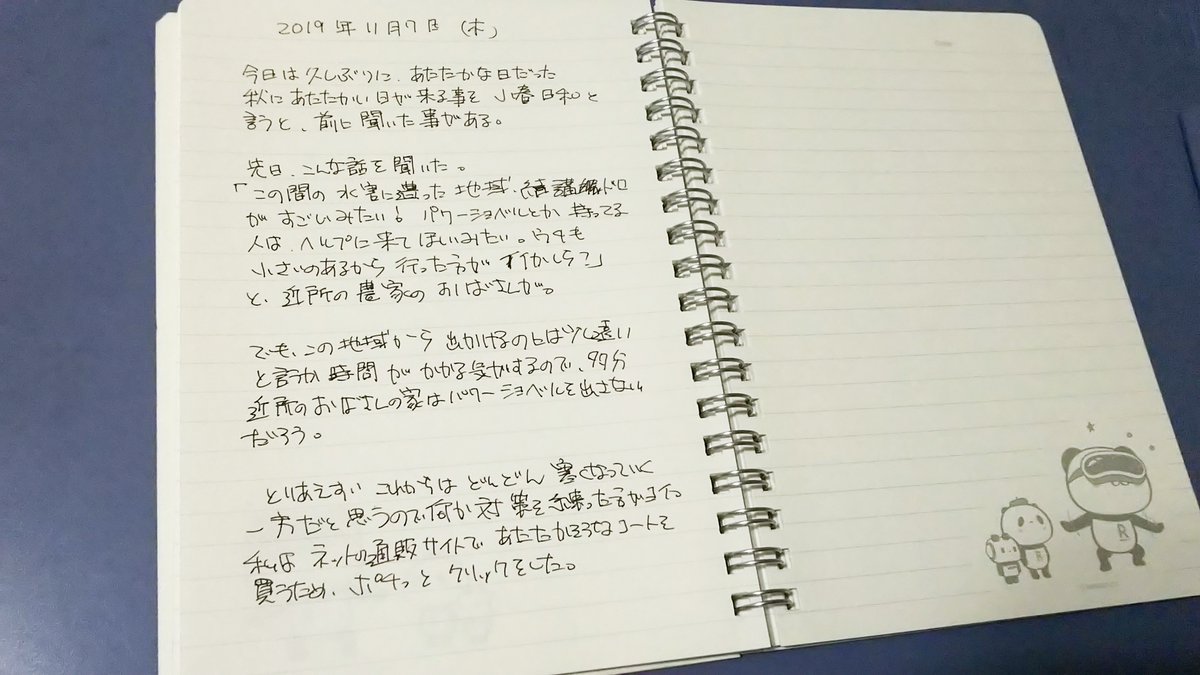 2019年11月7日(木)
今日は久しぶりに、あたたかな日だった
秋にあたたかい日が来る事を 小春日和と
言うと、前に聞いた事がある。
先日、こんな話を聞いた。
「この間の水害に遭った地域、結構ドロ
がすごいみたい！パワーショベルとか持ってる
人は、ヘルプに来てほしいみたい。ウチも
小さいのあるから行った方がイイかしら？」
と、近所の農家のおばさんが。
でも、この地域から出かけるのには少し遠い
と言うか時間がかかる気がするので、多分
近所のおばさんの家はパワーショベルを出さない
だろう。
とりあえず これからは どんどん 寒くなっていく
一方だと思うので何か対策を練った方がヨイ。
私は ネットの通販サイトで あたたかそうなコートを
買うため、ポチっと クリックをした。
R
R